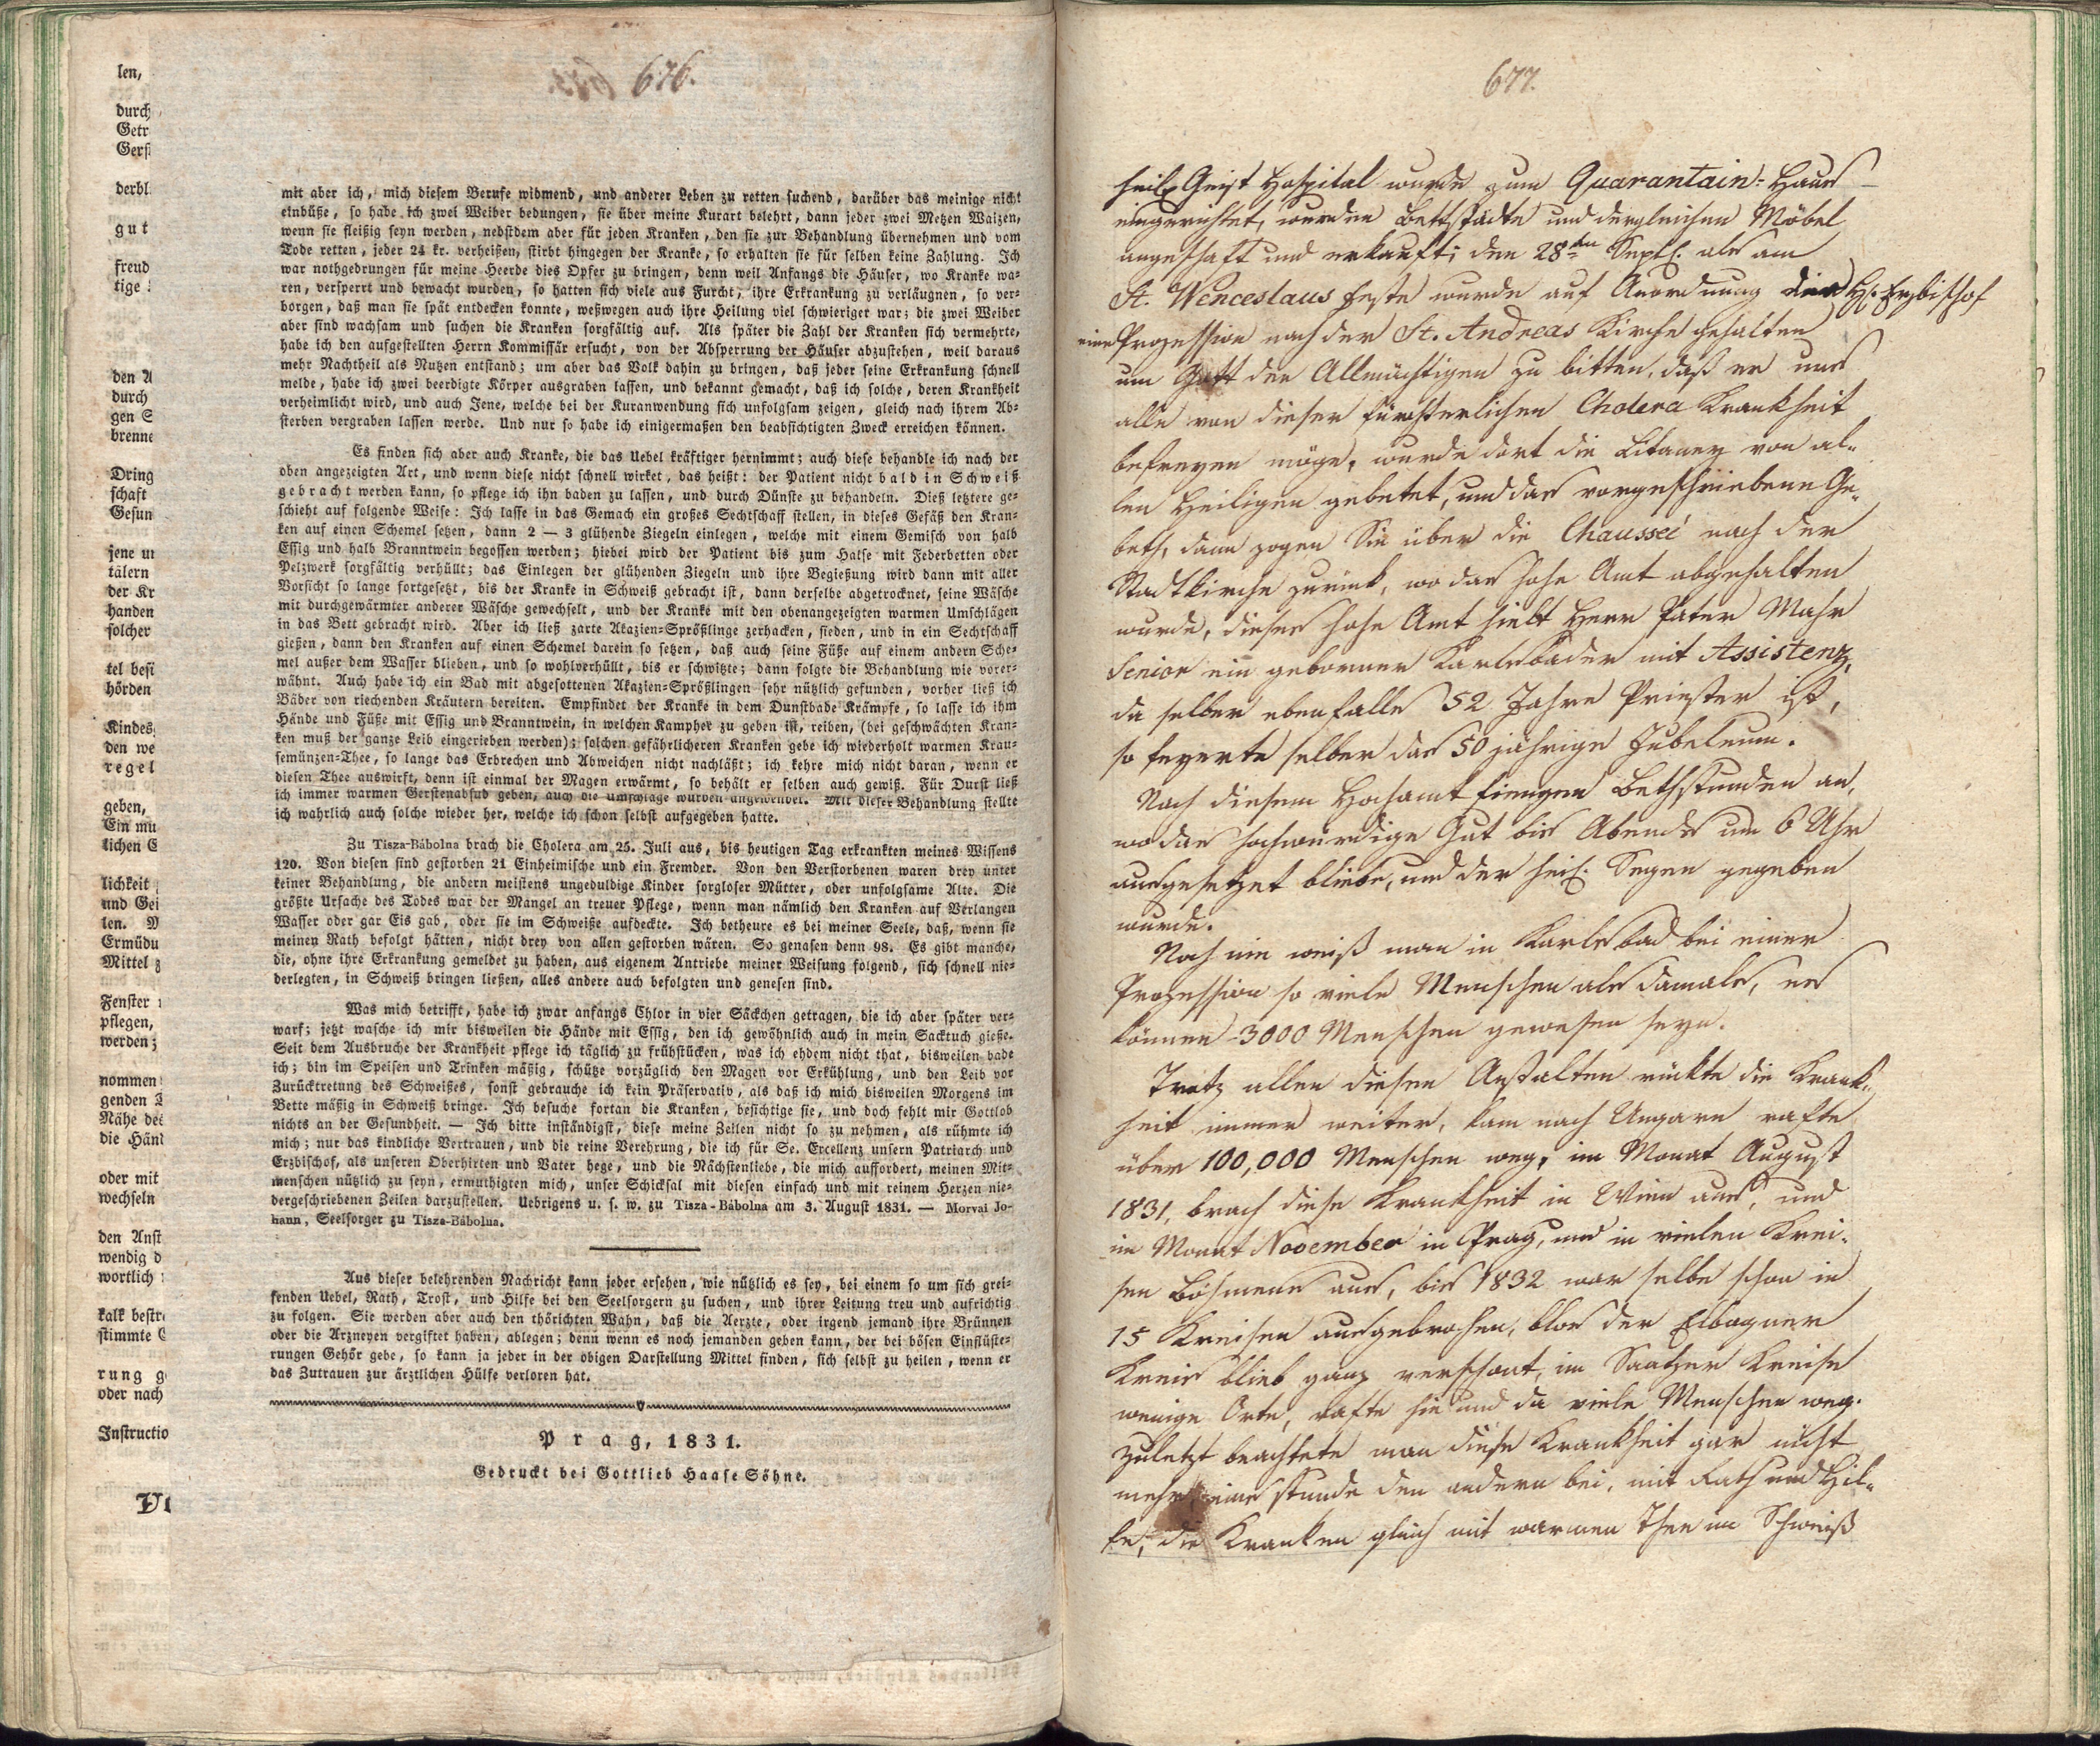 676.
len,
durch
Getr
Gers
derbl
gut
freud
tige
den A
durch
gen S
brenne
Dring
schaft
Gesun
jene un
tälern
der Kr
handen
solcher
tel besi
hörden
Kindes
den we
regel
geben,
Ein mu
lichen E
lichkeit
und Gei
len. M
Ermüdu
Mittel z
Fenster
pflegen,
werden;
nommen
genden
Nähe des
die Händ
oder mit
wechseln
den Anst
wendig d
wortlich
kalk bestr
stimmte
rung g
oder nach
Instructio
mit aber ich, mich diesem Berufe widmend, und anderer Leben zu retten suchend, darüber das meinige nicht
einbüße, so habe ich zwei Weiber bedungen, sie über meine Kurart belehrt, dann jeder zwei Metzen Waizen,
wenn sie fleißig seyn werden, nebstdem aber für jeden Kranken, den sie zur Behandlung übernehmen und vom
Tode retten, jeder 24 kr. verheißen, stirbt hingegen der Kranke, so erhalten sie für selben keine Zahlung. Ich
war nothgedrungen für meine Heerde dies Opfer zu bringen, denn weil Anfangs die Häuser, wo Kranke wa-
ren, versperrt und bewacht wurden, so hatten sich viele aus Furcht, ihre Erkrankung zu verläugnen, so ver-
borgen, daß man sie spät entdecken konnte, weßwegen auch ihre Heilung viel schwieriger war; die zwei Weiber
aber sind wachsam und suchen die Kranken sorgfältig auf. Als später die Zahl der Kranken sich vermehrte,
habe ich den aufgestellten Herrn Kommissär ersucht, von der Absperrung der Häuser abzustehen, weil daraus
mehr Nachtheil als Nutzen entstand; um aber das Volk dahin zu bringen, daß jeder seine Erkrankung schnell
melde, habe ich zwei beerdigte Körper ausgraben lassen, und bekannt gemacht, daß ich solche, deren Krankheit
verheimlicht wird, und auch Jene, welche bei der Kuranwendung sich unfolgsam zeigen, gleich nach ihrem Ab-
sterben vergraben lassen werde. Und nur so habe ich einigermaßen den beabsichtigten Zweck erreichen können.
Es finden sich aber auch Kranke, die das Uebel kräftiger hernimmt; auch diese behandle ich nach der
oben angezeigten Art, und wenn diese nicht schnell wirket, das heißt: der Patient nicht bald in Schweiß
gebracht werden kann, so pflege ich ihn baden zu lassen, und durch Dünste zu behandeln. Dieß letztere ge-
schieht auf folgende Weise: Ich lasse in das Gemach ein großes Sechtschaff stellen, in dieses Gefäß den Kran-
ken auf einen Schemel setzen, dann 2 — 3 glühende Ziegeln einlegen, welche mit einem Gemisch von halb
Essig und halb Branntwein begossen werden; hiebei wird der Patient bis zum Halse mit Federbetten oder
Pelzwerk sorgfältig verhüllt; das Einlegen der glühenden Ziegeln und ihre Begießung wird dann mit aller
Vorsicht so lange fortgesetzt, bis der Kranke in Schweiß gebracht ist, dann derselbe abgetrocknet, seine Wäsche
mit durchgewärmter anderer Wäsche gewechselt, und der Kranke mit den obenangezeigten warmen Umschlägen
in das Bett gebracht wird. Aber ich ließ zarte Akazien-Sprößlinge zerhacken, sieden, und in ein Sechtschaff
gießen, dann den Kranken auf einen Schemel darein so setzen, daß auch seine Füße auf einem andern Sche-
mel außer dem Wasser blieben, und so wohlverhüllt, bis er schwitzte; dann folgte die Behandlung wie vorer-
wähnt. Auch habe ich ein Bad mit abgesottenen Akazien-Sprößlingen sehr nützlich gefunden, vorher ließ ich
Bäder von riechenden Kräutern bereiten. Empfindet der Kranke in dem Dunstbade Krämpfe, so lasse ich ihm
Hände und Füße mit Essig und Branntwein, in welchen Kampher zu geben ist, reiben, (bei geschwächten Kran-
ken muß der ganze Leib eingerieben werden); solchen gefährlicheren Kranken gebe ich wiederholt warmen Krau-
semünzen-Thee, so lange das Erbrechen und Abweichen nicht nachläßt; ich kehre mich nicht daran, wenn er
diesen Thee auswirft, denn ist einmal der Magen erwärmt, so behält er selben auch gewiß. Für Durst ließ
ich immer warmen Gerstenabsud geben, auch die Umschläge wurden angewendet. Mit dieser Behandlung stellte
ich wahrlich auch solche wieder her, welche ich schon selbst aufgegeben hatte.
Zu Tisza-Bábolna brach die Cholera am 25. Juli aus, bis heutigen Tag erkrankten meines Wissens
120. Von diesen sind gestorben 21 Einheimische und ein Fremder. Von den Verstorbenen waren drey unter
keiner Behandlung, die andern meistens ungeduldige Kinder sorgloser Mütter, oder unfolgsame Alte. Die
größte Ursache des Todes war der Mangel an treuer Pflege, wenn man nämlich den Kranken auf Verlangen
Wasser oder gar Eis gab, oder sie im Schweiße aufdeckte. Ich betheure es bei meiner Seele, daß, wenn sie
meinen Rath befolgt hätten, nicht drey von allen gestorben wären. So genasen denn 98. Es gibt manche,
die, ohne ihre Erkrankung gemeldet zu haben, aus eigenem Antriebe meiner Weisung folgend, sich schnell nie-
derlegten, in Schweiß bringen ließen, alles andere auch befolgten und genesen sind.
Was mich betrifft, habe ich zwar anfangs Chlor in vier Säckchen getragen, die ich aber später ver-
warf; jetzt wasche ich mir bisweilen die Hände mit Essig, den ich gewöhnlich auch in mein Sacktuch gieße.
Seit dem Ausbruche der Krankheit pflege ich täglich zu frühstücken, was ich ehdem nicht that, bisweilen bade
ich; bin im Speisen und Trinken mäßig, schütze vorzüglich den Magen vor Erkühlung, und den Leib vor
Zurücktretung des Schweißes, sonst gebrauche ich kein Präservativ, als daß ich mich bisweilen Morgens im
Bette mäßig in Schweiß bringe. Ich besuche fortan die Kranken, besichtige sie, und doch fehlt mir Gottlob
nichts an der Gesundheit. — Ich bitte inständigst, diese meine Zeilen nicht so zu nehmen, als rühmte ich
mich; nur das kindliche Vertrauen, und die reine Verehrung, die ich für Se. Excellenz unsern Patriarch und
Erzbischof, als unseren Oberhirten und Vater hege, und die Nächstenliebe, die mich auffordert, meinen Mit-
menschen nützlich zu seyn, ermuthigten mich, unser Schicksal mit diesen einfach und mit reinem Herzen nie-
dergeschriebenen Zeilen darzustellen. Uebrigens u. s. w. zu Tisza-Bábolna am 3. August 1831. — Morvai Jo-
hann, Seelsorger zu Tisza-Bábolna.
Aus dieser belehrenden Nachricht kann jeder ersehen, wie nützlich es sey, bei einem so um sich grei-
fenden Uebel, Rath, Trost, und Hilfe bei den Seelsorgern zu suchen, und ihrer Leitung treu und aufrichtig
zu folgen. Sie werden aber auch den thörichten Wahn, daß die Aerzte, oder irgend jemand ihre Brünnen
oder die Arzneyen vergiftet haben, ablegen; denn wenn es noch jemanden geben kann, der bei bösen Einflüste-
rungen Gehör gebe, so kann ja jeder in der obigen Darstellung Mittel finden, sich selbst zu heilen, wenn er
das Zutrauen zur ärztlichen Hülfe verloren hat.
Prag, 1831.
Gedruckt bei Gottlieb Haase Söhne.
677.
heilg Geist Hospital wurde zum Quarantain-Haus
eingerichtet, wurden Bettstädte und dergleichen Möbel
angeschaft und erkauft; den 28ten Septb. als am
St. Wenceslaus Feste wurde auf Anordnung des H: Erzbischof
eine Prozession nach der St. Andreas Kirche gehalten
um Gott den Allmächtigen zu bitten, daß er uns
alle von dieser fürchterlichen Cholera Krankheit
befreyen möge, wurde dort die Litaney von al-
len Heiligen gebetet, und das vorgeschriebene Ge-
beth, dann zogen Sie über die Chausseé nach der
Stadtkirche zurück, wo das hohe Amt abgehalten
wurde, dieses hohe Amt hielt Herr Pater Mahr
Senior ein geborner Karlsbader mit Assistenz,
da selber ebenfalls 52 Jahre Priester ist,
so feyerte selber das 50 jährige Jubeleum.
Nach diesem Hochamt fiengen Bethstunden an,
wo das hochwürdige Gut bis Abends um 6 Uhr
ausgesetzet bliebe, und der heil. Segen gegeben
wurde.
Noch nie weiß man in Karlsbad bei einer
Prozession so viele Menschen als damals, es
können 3000 Menschen gewesen seyn.
Trotz allen diesen Anstalten rückte die Krank-
heit immer weiter, kam nach Ungarn rafte
über 100,000 Menschen weg, im Monat August
1831, brach diese Krankheit in Wien aus, und
im Monat November in Prag, und in vielen Krei-
sen Böhmens aus, bis 1832 war selbe schon in
15 Kreisen ausgebrochen, blos der Elbogner
Kreis blieb ganz verschont, im Saatzer Kreise
wenige Orte, rafte hie und da viele Menschen weg.
Zuletzt beachtete man diese Krankheit gar nicht
mehr, einer stunde den andern bei, mit Rath und Hil-
fe, die Kranken gleich mit warmen Thee in Schweiß